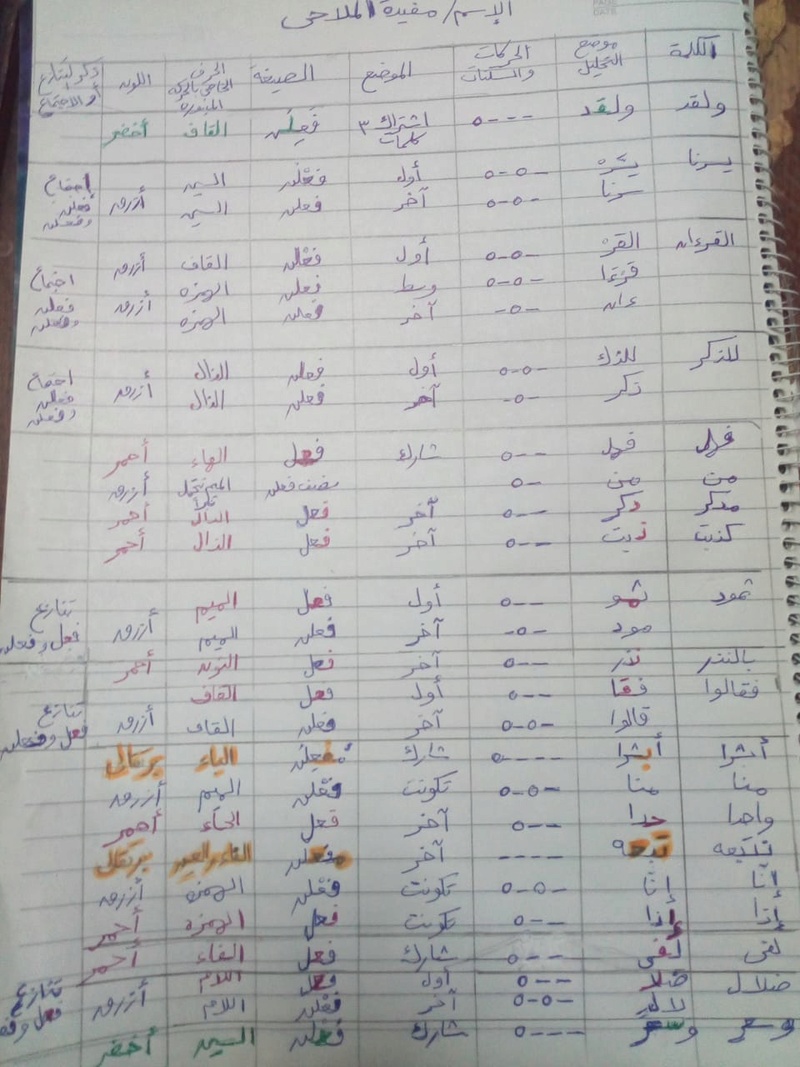 الإسم/ مفيدة الملاحي
الكلمة موضع التحليل الحركات والسكنات الموضع الصيغة الحرف الخاص بالحركة اللون ذكر لتنازع أو الاجتماع
ولقد ولقد ----o اشتراك ٣ كلمات فَعِلُن القاف أخضر
يسرنا يسّرْ -o-o أول فعْلن السين أزرق اجتماع فعلن وفعلن
سرنا -o-o آخر فعلن السين
القرءان القرْ -o-o أول فعْلن القاف أزرق اجتماع فعلن وفعلن
قرءا -o-o وسط فعلن الهمزه
ءان -o- آخر فعلن الهمزه أزرق
للذكر للذك -o-o أول فعلن الذال أزرق اجتماع فعلن وفعلن
ذكر -o- آخر فعلن الذال
فهل فهل --o شارك فعل الهاء أحمر
من من -o نصف فعلن الميم أزرق
مدكر دكر --o آخر فعل الدال أحمر
كذبت ذبت --o آخر فعل الذال أحمر
ثمود ثمو --o أول فعل الميم تنازع فعل وفعلن
مود -o- آخر فعلن الميم أزرق
بالنذر نذر --o آخر فعل النون أحمر
فقالوا فقا --o أول فعل القاف تنازع فعل وفعلن
قالوا -o-o آخر فعلن القاف أزرق
أبشرا أبشرا ----o شارك الباء برتقالي
منا منا -o-o تكونت فعْلن الميم أزرق
واحدا حدا --o آخر فعل الحاء أحمر
نتبعه تبعه ---- آخر التاء والعين برتقالي
إنّا إنّا -o-o تكونت فعْلن الهمزه أزرق
إذا إذا --o تكونت فعل الهمزه أحمر
لفى لفى --o شارك فعل الفاء أحمر
ضلال ضلا --o أول فعل اللام تنازع
لالٍ -o-o آخر فعْلن اللام أزرق فعل
وسعر وسعر ---o شارك فعلن السين أخضر